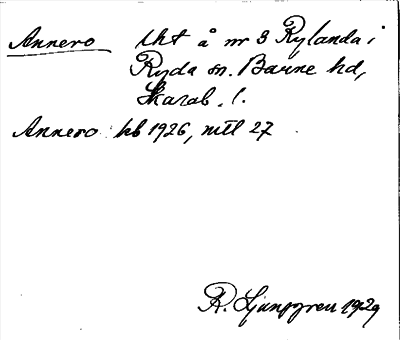 Annero lht å nr 3 Rylanda i
Ryda sn. Barne hd,
Skarab. l.
Annero kb 1926, mtl 27
R. Ljunggren 1929